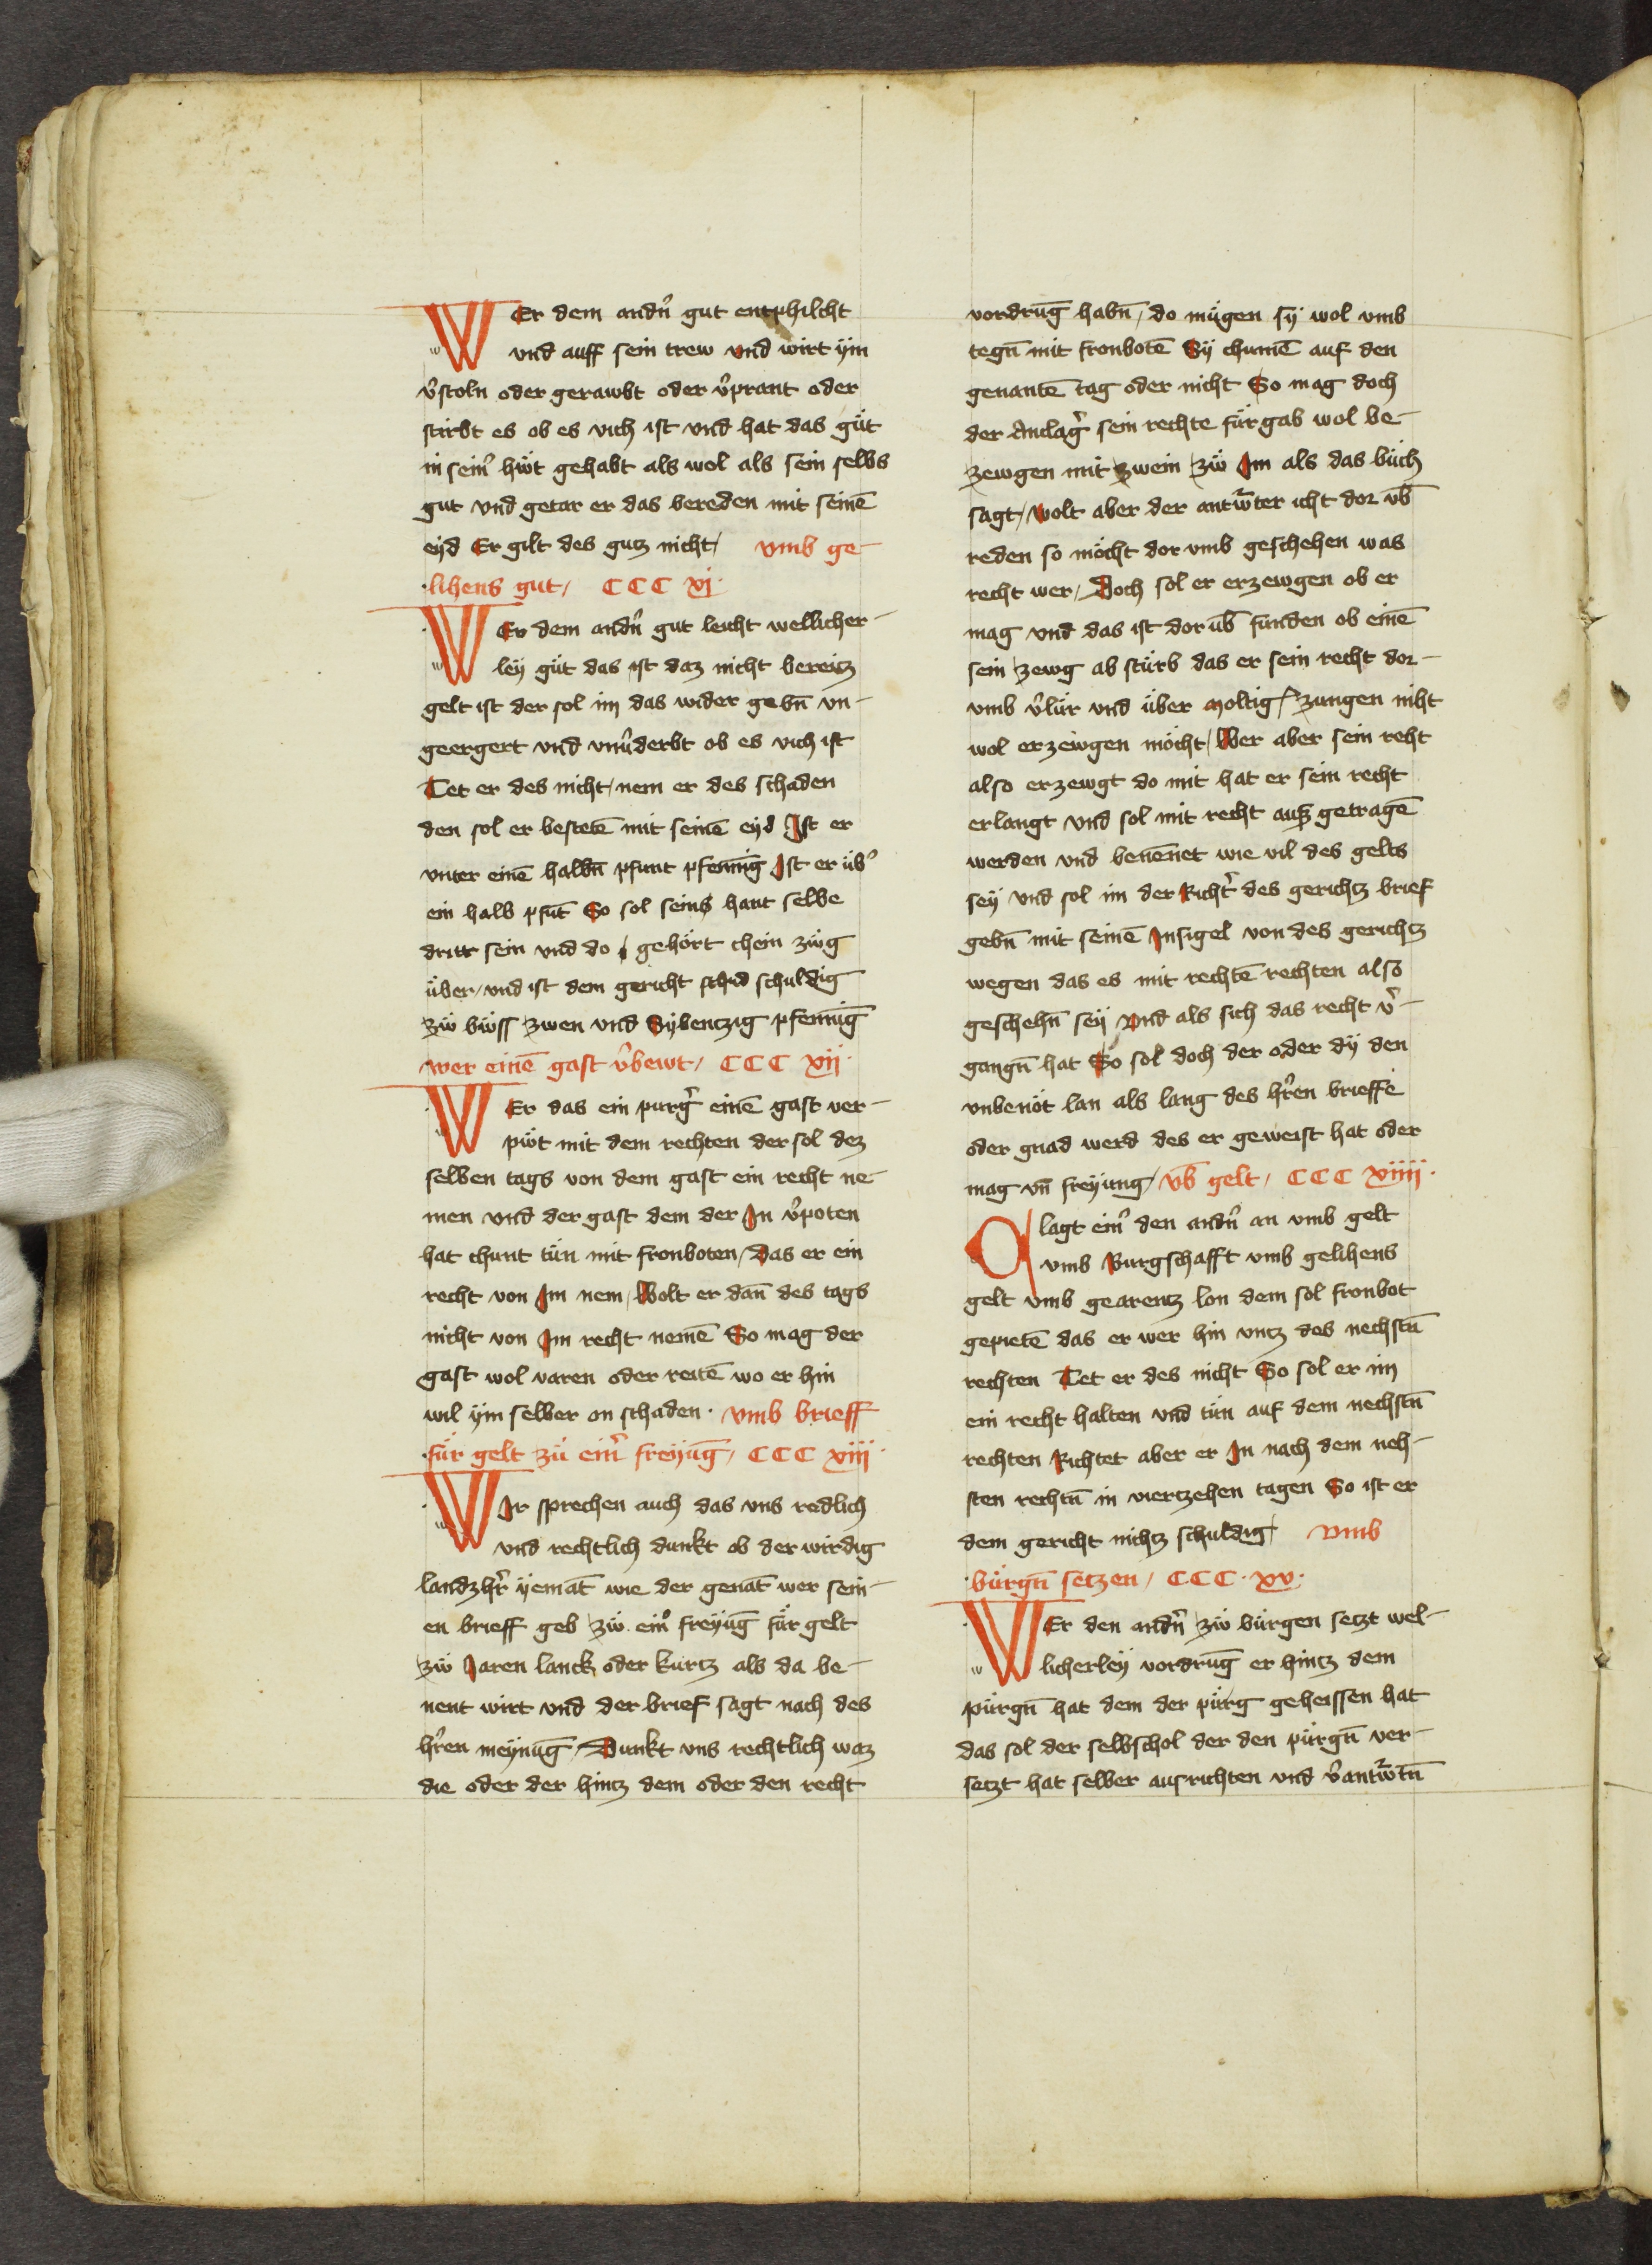 WEr dem andn̄ gut entphilcht
und auff sein trew und wirt ÿm
v̂stoln oder gerawbt oder v̂prant oder
stirbt es ob es vich ist und hat das gůt
in sein̂ hẅt gehabt als wol als sein selbs
gut und getar er das bereden mit seinē
eÿd Er gilt des gutz nicht / vmb ge-
lihens gut / CCC xj
WEr dem andn̄ gut leicht wellicher-
leÿ gůt das ist daz nicht bereitz
gelt ist der sol im das wider gebn̄ vn-
geergert und vnv̂derbt ob es vich ist
Tet er des nicht / nem er des schaden
den sol er bestetē mit seinē eyd Ist er
vnter einē halbn̄ pfunt pfenni̅g Ist er üb̂
ein halb pfūt So sol seins hant selbe
dritt sein und do gehört chein zẅg
über / und ist dem gericht schuldig
zẅ bẅss zwen und Sÿbentzig pfenni̅g
wer einē gast v̂bewt / CCC xij
WEr das ein purĝ einē gast ver-
pẅt mit dem rechten der sol dez
selben tags von dem gast ein recht ne-
men und der gast dem der In v̂poten
hat chunt tün mit fronboten / Das er ein
recht von Im nem / Wolt er dan̄ des tags
nicht von Im recht nemē So mag der
gast wol varen oder reitē wo er hin
wil ÿm selber on schaden · vmb brieff
für gelt zü ein̂ freÿūg / CCC xiij
WIr sprechen auch das vns redlich
und rechtlich dunkt ob der wirdig
landzhr̂ ÿemāt wie der genāt wer sein-
en brieff geb zẅ ein̂ freÿūg für gelt
zẅ Jaren lanck oder kurtz als da be-
nent wirt und der brief sagt nach des
hr̂en meÿnūg / Dunkt vns rechtlich waz
die oder der hintz dem oder den recht
vordrūg habn̄ / do mügen sÿ wol vmb
tegn̄ mit fronbotē Sÿ chumē auf den
genantē tag oder nicht So mag doch
der Anclaĝ sein rechte fürgab wol be-
zewgen mit zwein zẅ Im als das büch
sagt / wolt aber der antw̄ter icht dor vb̄
reden so möcht dor vmb geschehen was
recht wer / Doch sol er erzewgen ob er
mag und das ist dor üb̄ funden ob einē
sein zewg ab stürb das er sein recht dor-
vmb v̂lür und über moltig / zungen niht
wol erzewgen möcht / Wer aber sein reht
also erzewgt do mit hat er sein recht
erlangt und sol mit recht auß getragē
werden und benēnet wie vil des gelts
seÿ und sol im der Richt̂ des gerichtz brief
gebn̄ mit seinē Insigel von des gerichtz
wegen das es mit rechtē rechten also
geschehn̄ seÿ Und als sich das recht v̂-
gangn̄ hat So sol doch der oder dÿ den
vnbenöt lan als lang des hr̂en brieffe
oder gnad werd des er geweist hat oder
mag vn̄ freÿung / vb̄ gelt / CCC xiiij ·
Clagt ein̂ den andn̄ an vmb gelt
vmb Burgschafft vmb gelihens
gelt vmb gearentz lon dem sol fronbot
gepietē das er wer hin vntz des nechstn̄
rechten Tet er des nicht So sol er im
ein recht halten und tün auf dem nechstn̄
rechten Richtet aber er In nach dem neh-
sten rechtn̄ in viertzehen tagen So ist er
dem gericht nichtz schuldig / vmb
bürgn̄ setzen / CCC · xv ·
WEr den andn̄ zẅ bürgen setzt wel-
licherleÿ vordrūg er hintz dem
pürgn̄ hat dem der pürg geheissen hat
das sol der selbschol der den pürgn̄ ver-
setzt hat selber ausrichten und v̂antw̄tn̄